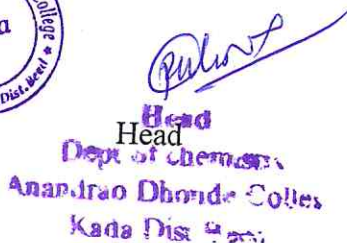 a
College
Dist. Beed
Head
Head
Dept of chemistry
Anandrao Dhonde Colleg
Kada Dist Beed